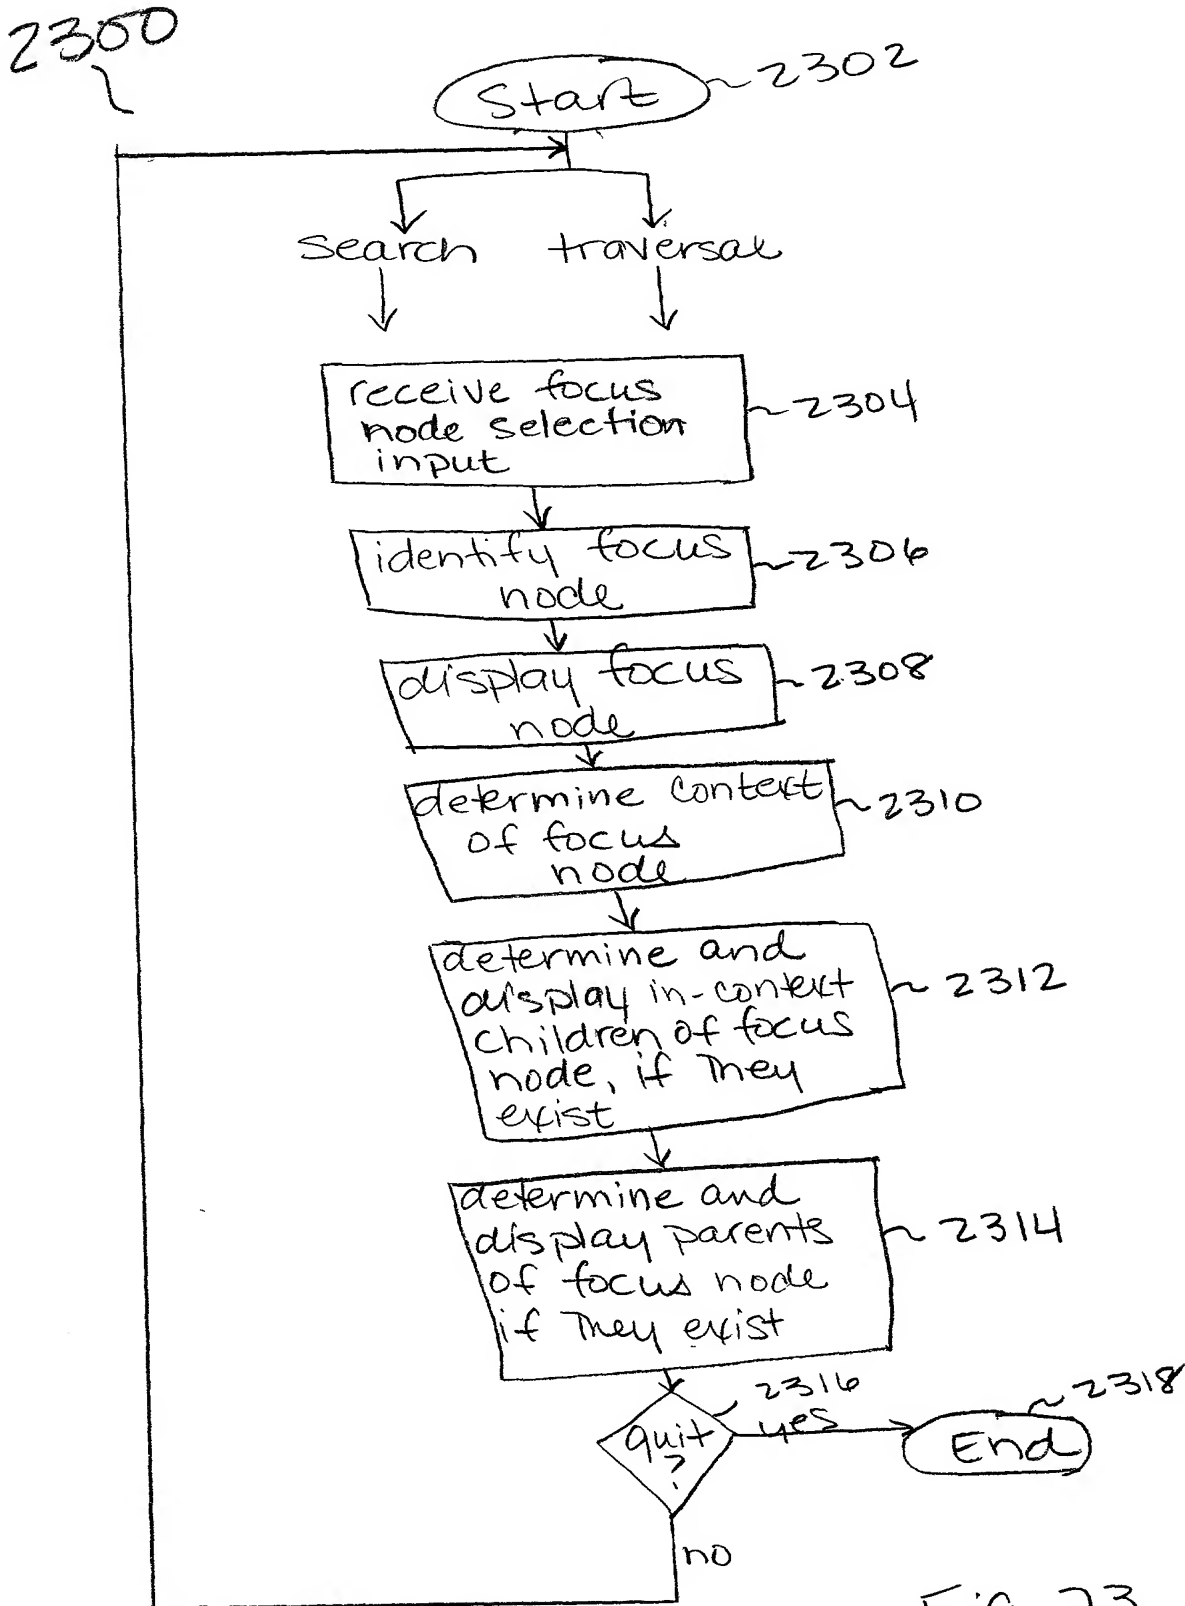 2300
Start
2302
search traversal
receive focus
node selection
input
2304
identify focus
node
2306
display focus
node
2308
determine context
of focus
node
2310
determine and
display in-context
children of focus
node, if they
exist
2312
determine and
display parents
of focus node
if they exist
2314
quit
?
2316
yes
End
2318
no